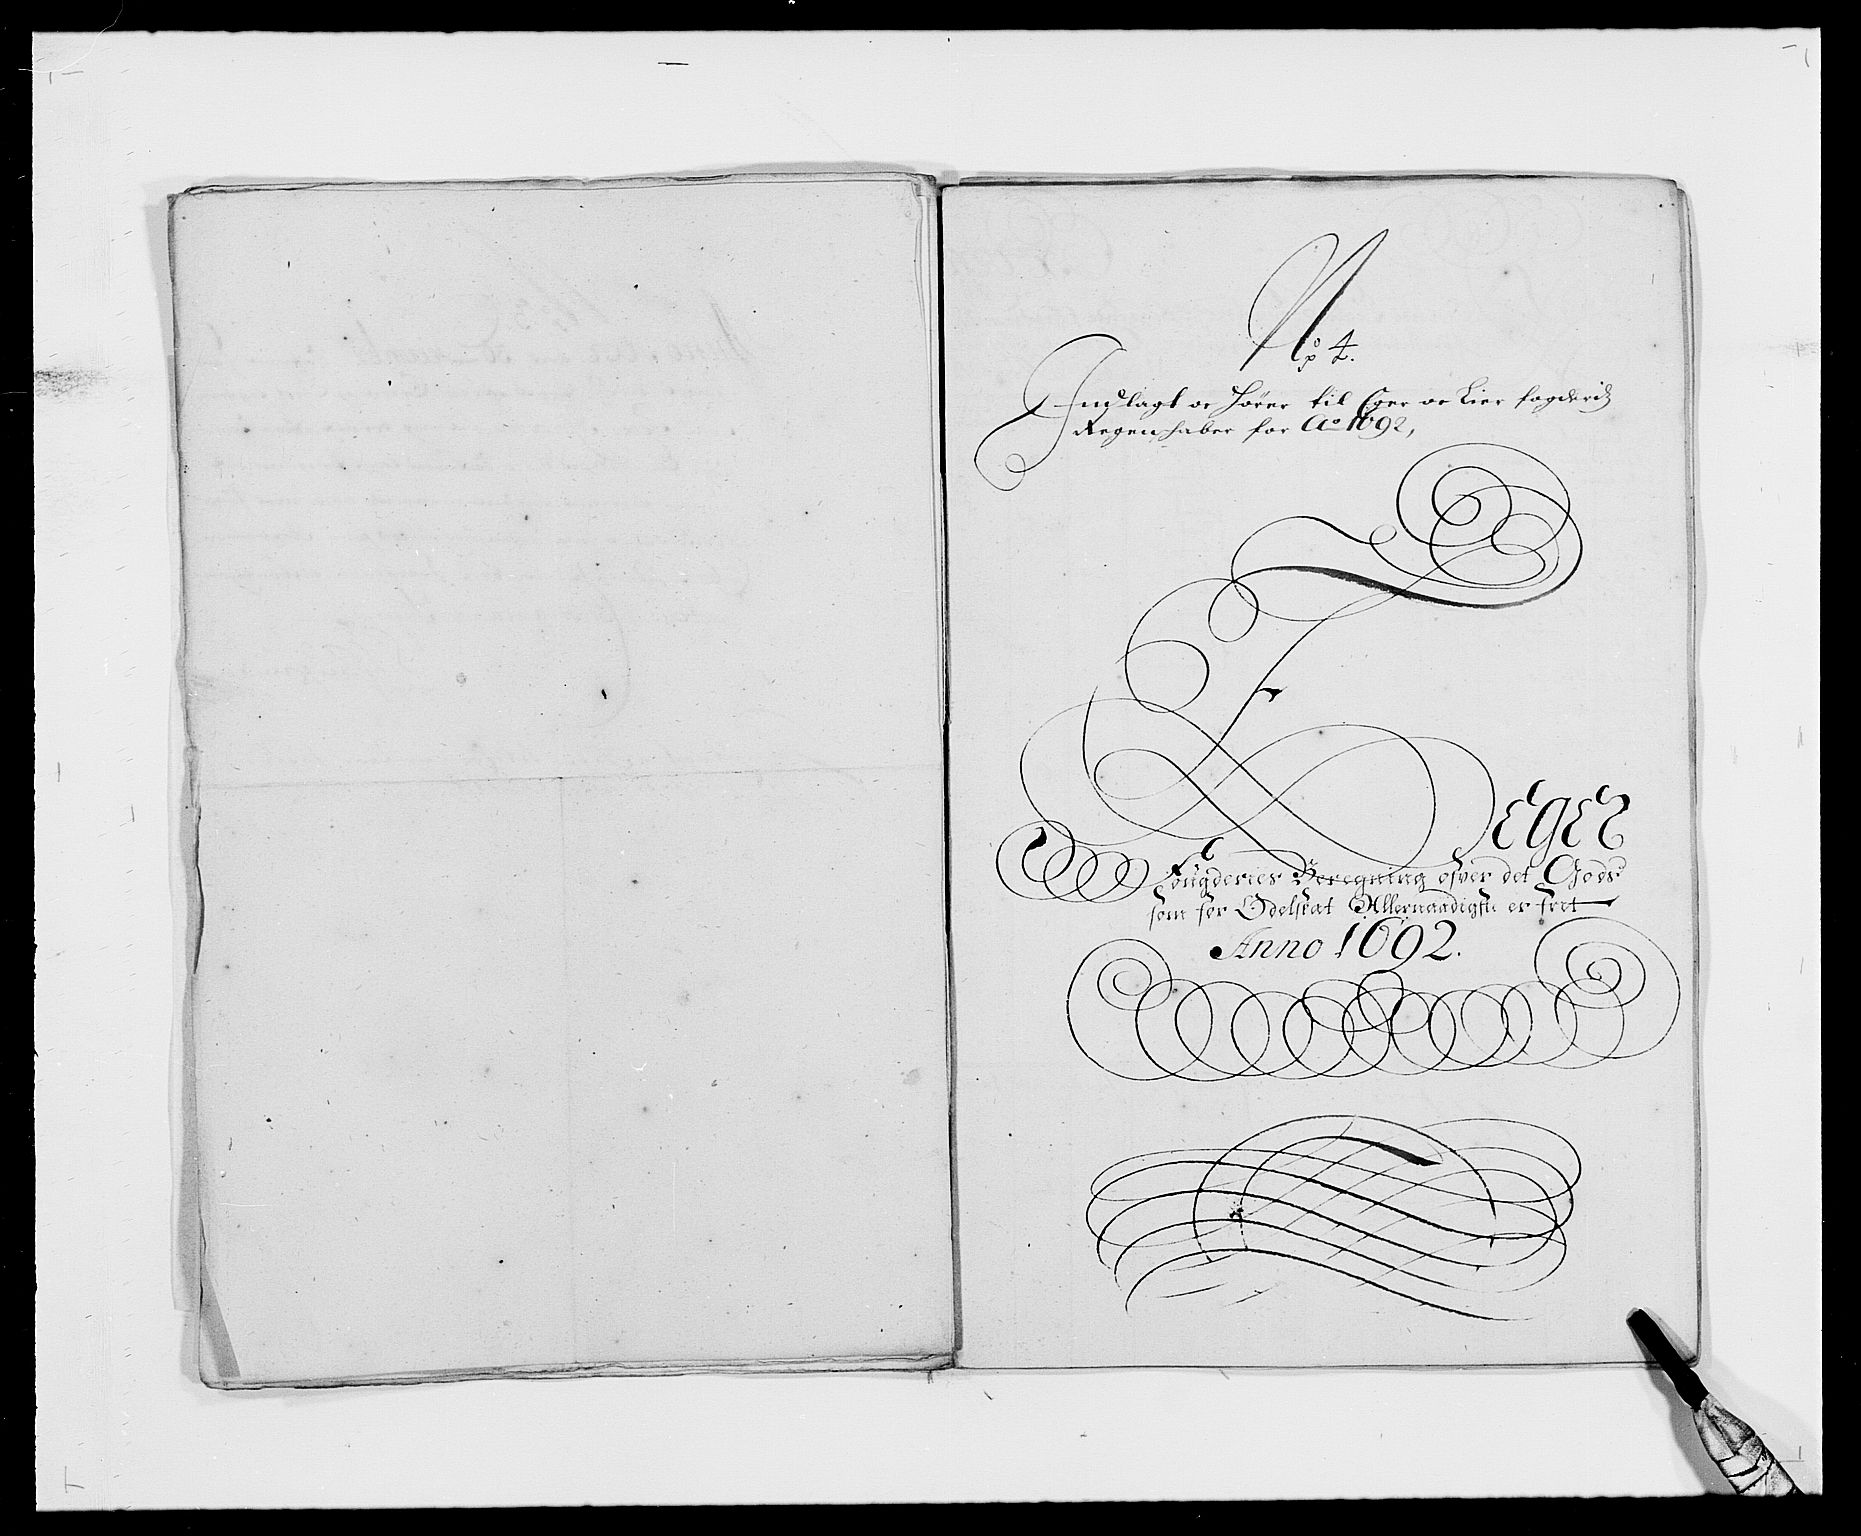 No 4.
Indlagt oc hører til Eger oc Lier fogderis
Regenschaber for Ao 1692,
Eeger
Fougderies Beregning ofver det Gods
som for Odelskat Allernaadigst er frit
Anno 1692.